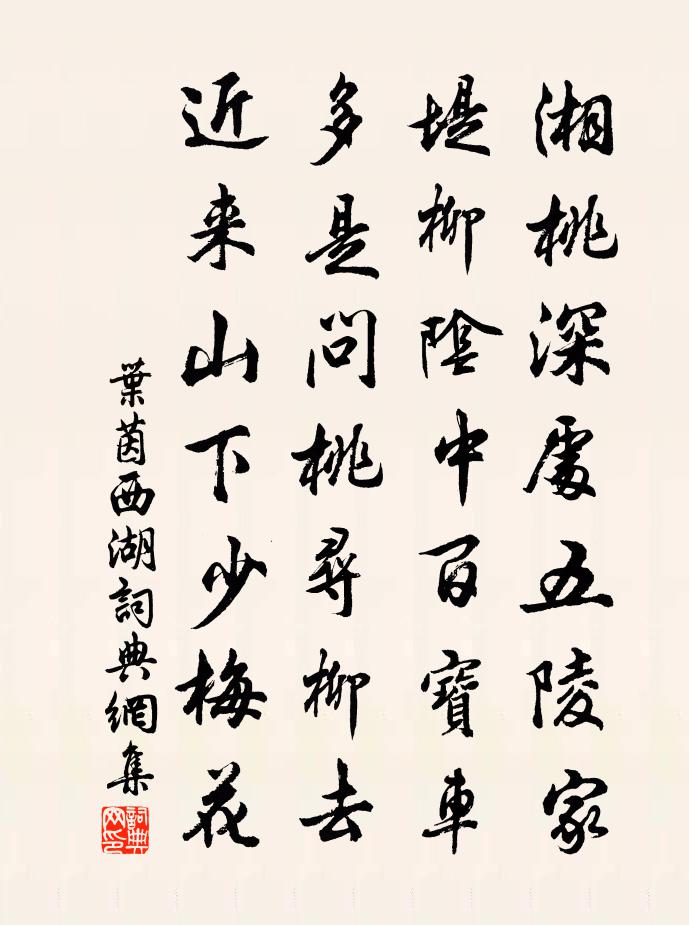 湘桃深處五陵家
堤柳陰中百寶車
多是問桃尋柳去
近来山下少梅花
葉茵西湖詞典網集
詞典網印